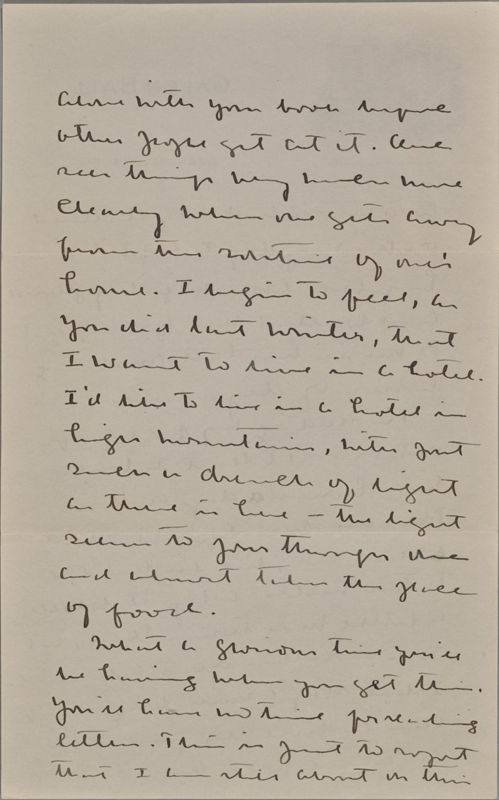 alone with your book before
other people get at it. One
sees things very much more
clearly when one gets away
from the routine of one's
home. I begin to feel, as
you did last winter, that
I want to live in a hotel.
I'd like to live in a hotel in
high mountains, with just
such a drench of light
as there is here – the light
seems to pour through one
and almost takes the place
of food.
What a glorious time you'll
be having when you get this.
You'll have no time for reading
letters. This is just to report
that I am still about on this